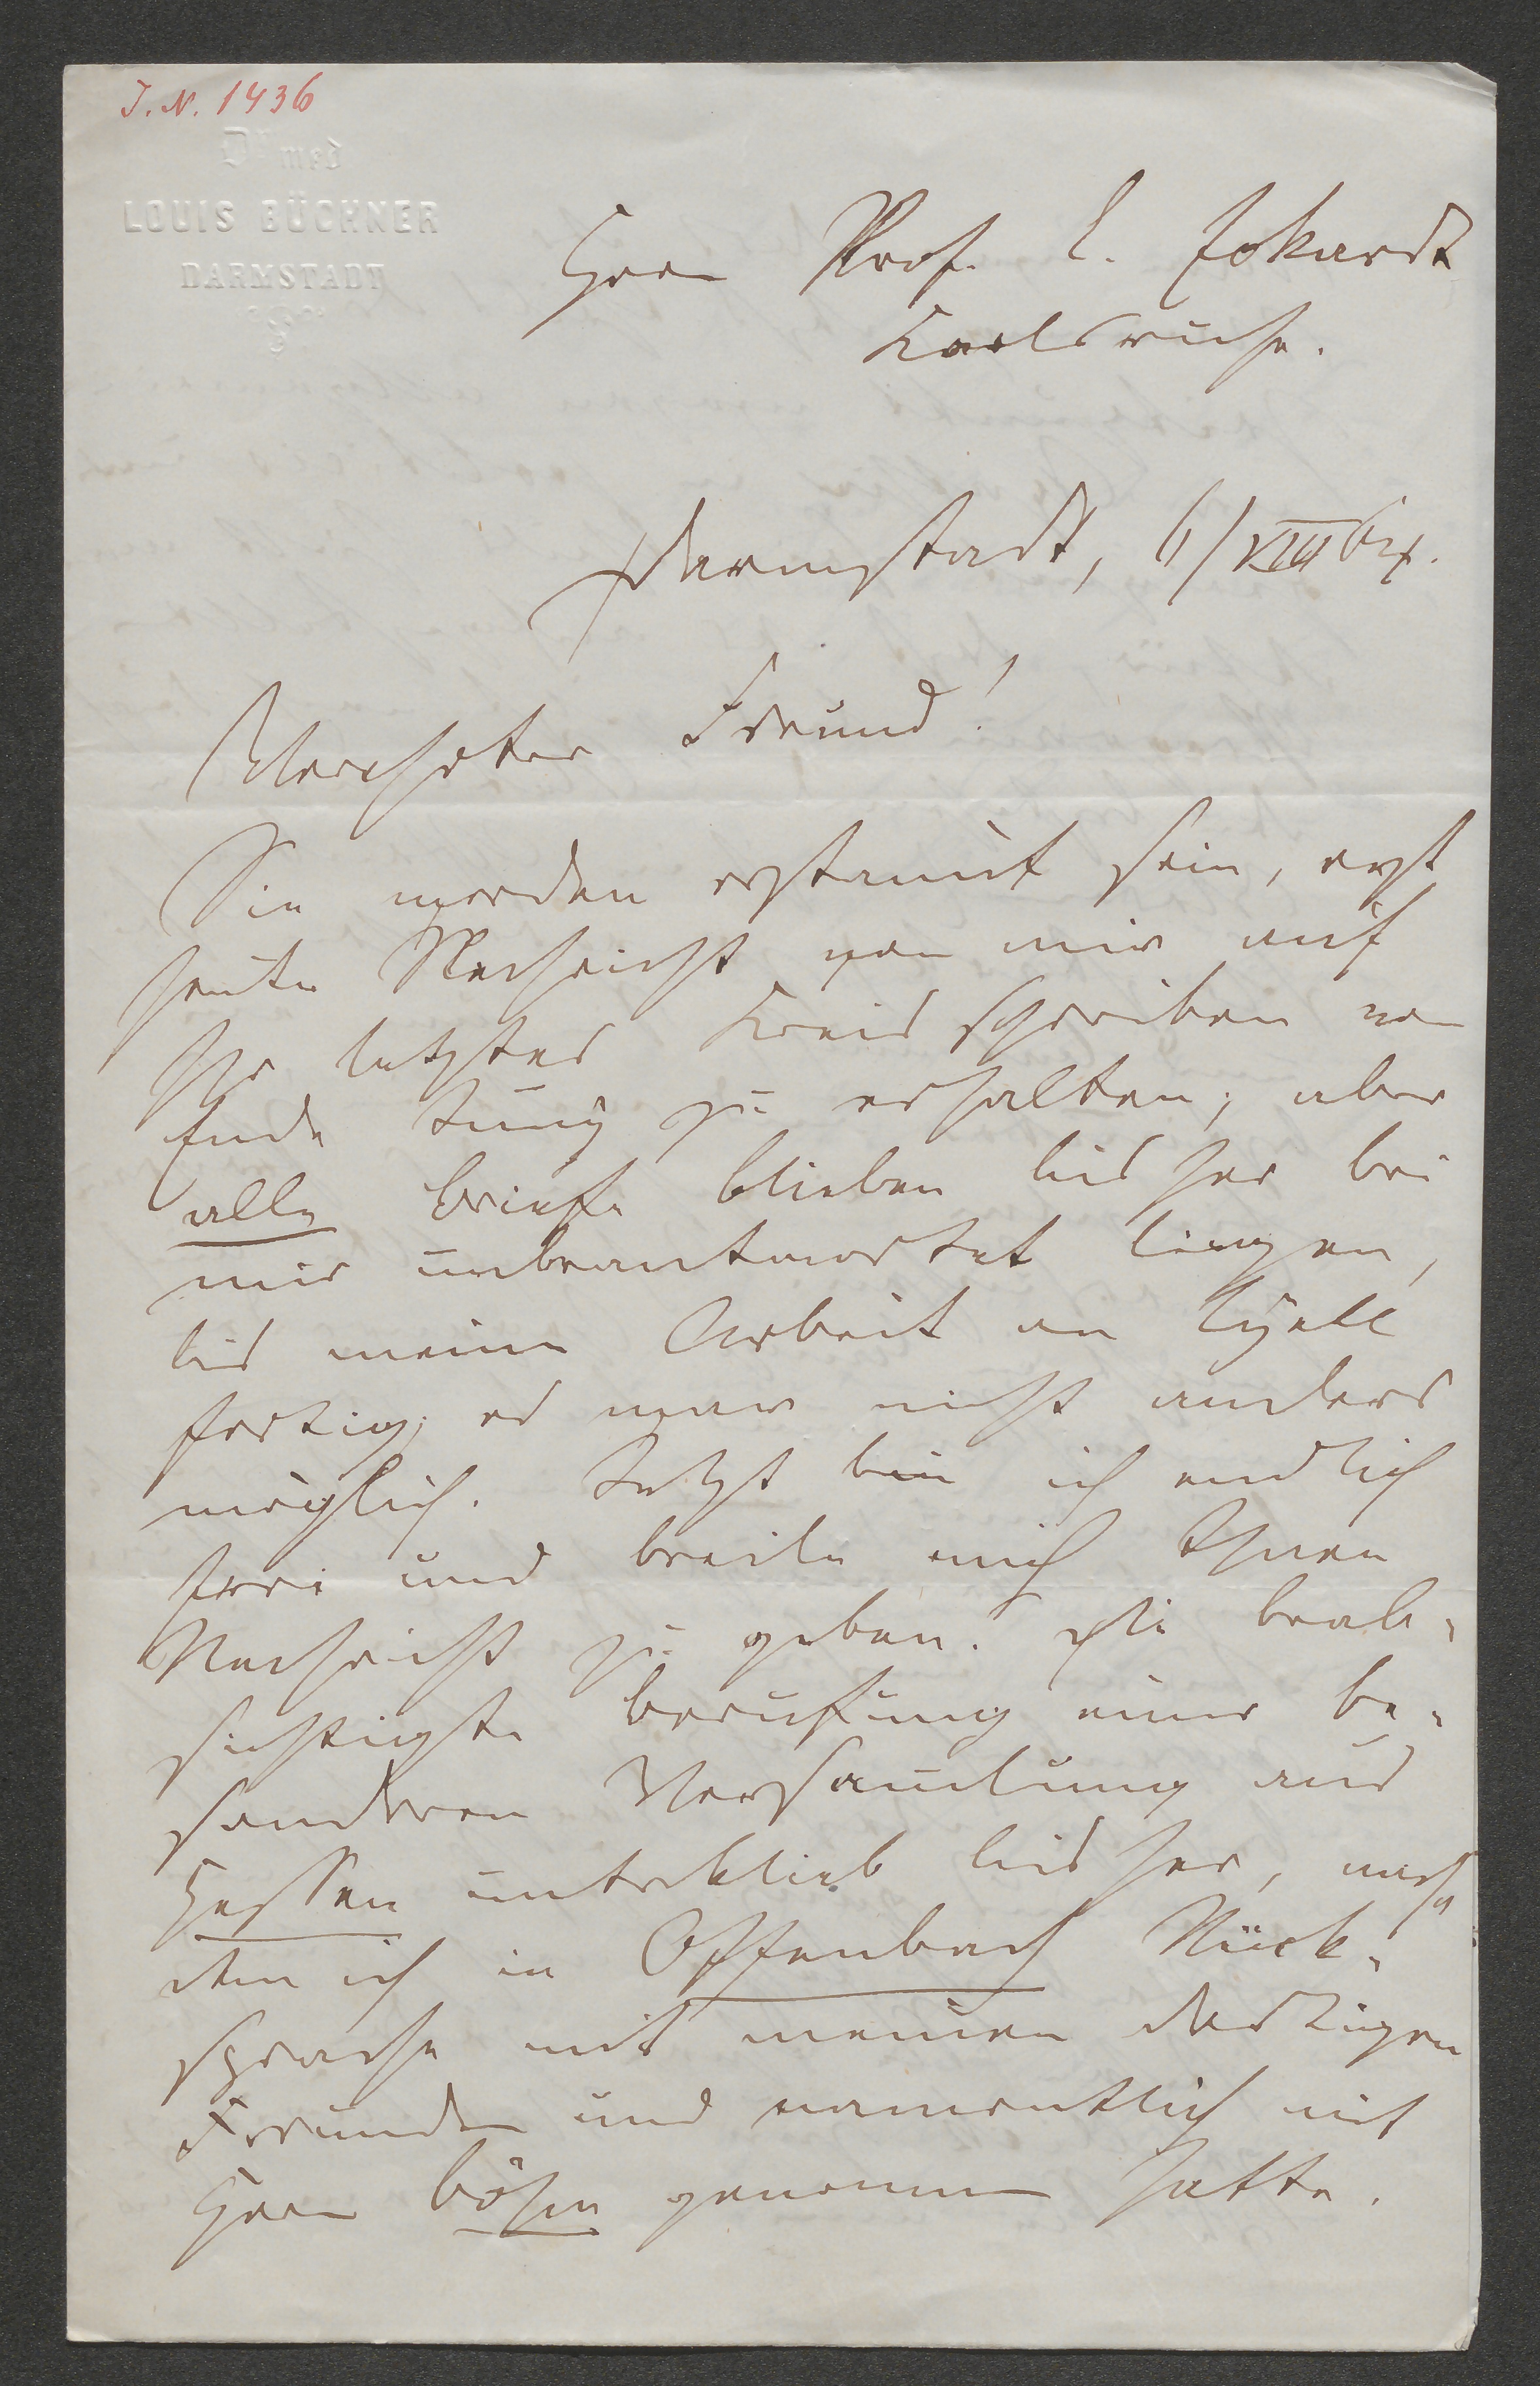 J. N. 1436
Dr med
LOUIS BÜCHNER
DARMSTADT
Herrn Prof. L. Eckardt
Karlsruhe.
Darmstadt, 6/VIII 64.
Verehrter Freund!
Sie werden erstaunt sein, erst
heute Nachricht von mir auf
Ihr letztes Kreisschreiben von
Ende Juny zu erhalten; aber
alle Briefe blieben bisher bei
mir unbeantwortet liegen,
bis meine Arbeit an Lyell
fertig; es war nicht anders
möglich. Jetzt bin ich endlich
frei und beeile mich Ihnen
Nachricht zu geben. Die beab-
sichtigte Berufung einer be-
sonderen Versamlung aus
Hessen unterblieb bisher, nach-
dem ich in Offenbach Rück-
sprache mit meinen dortigen
Freunden und namentlich mit
Herrn Böhm genommen hatte.